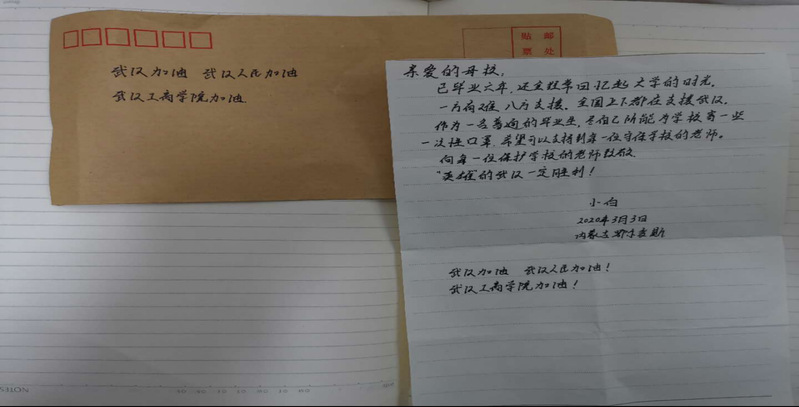 贴 邮
票 处
武汉加油 武汉人民加油
武汉工商学院加油
亲爱的母校,
已毕业六年,还会经常回忆起大学的时光。
一方有难 八方支援、全国上下都在支援武汉。
作为一名普通的毕业生,尽自己所能为学校寄一些
一次性口罩,希望可以支持到每一位守保学校的老师。
向每一位保护学校的老师致敬
"英雄"的武汉一定胜利!
小白
2020年3月3日
内蒙古鄂尔多斯
武汉加油 武汉人民加油!
武汉工商学院加油!
NOTES